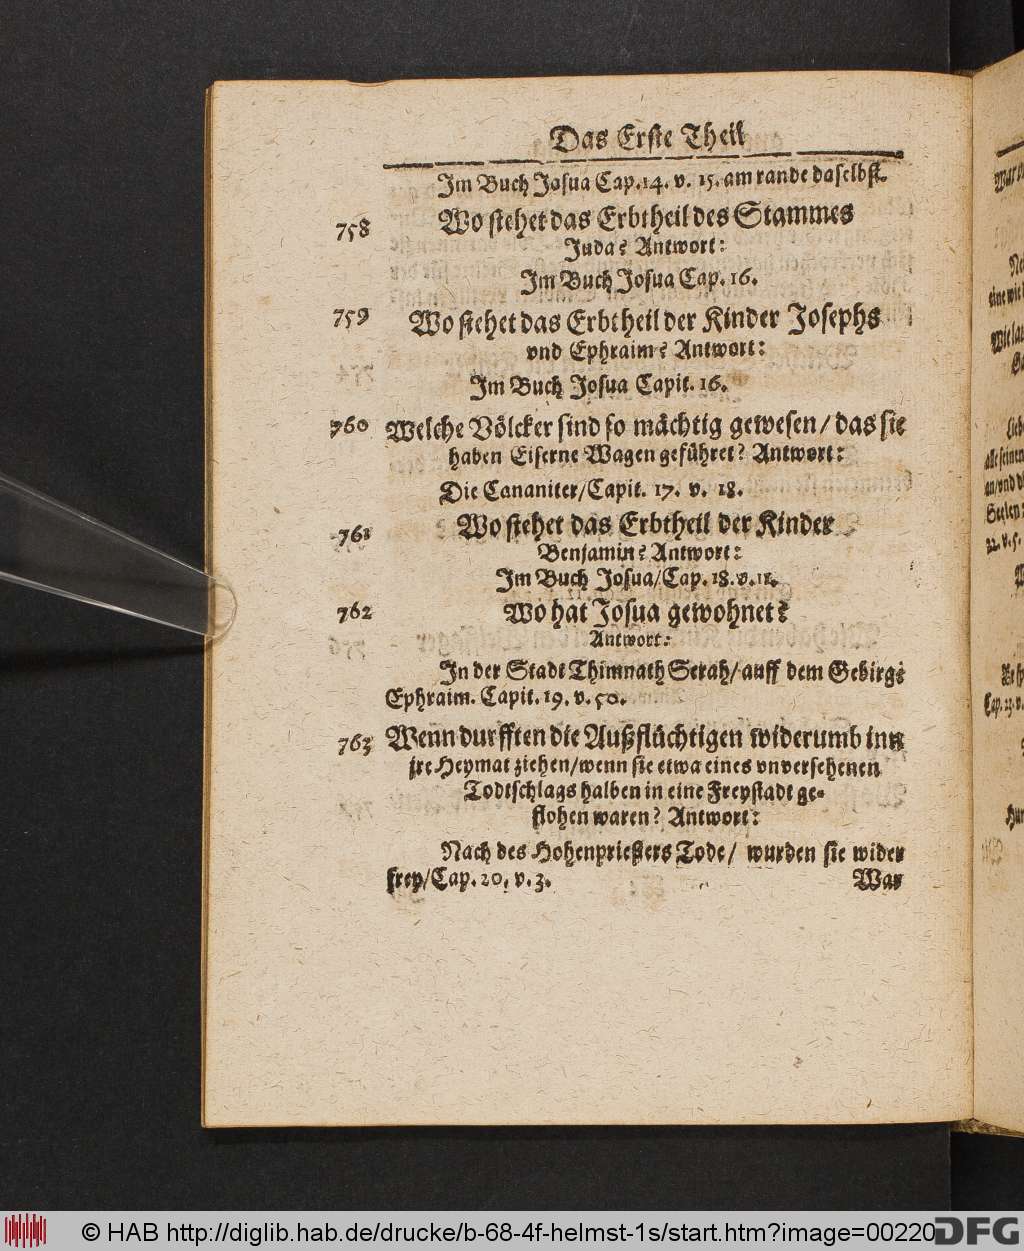 Das Erste Theil
Im Buch Josua Cap. 14. v. 15. am rande daselbst.
758 Wo stehet das Erbtheil des Stammes
Juda? Antwort:
Im Buch Josua Cap. 16.
759 Wo stehet das Erbtheil der Kinder Josephs
vnd Ephraim? Antwort:
Im Buch Josua Capit. 16.
760 Welche Völcker sind so mächtig gewesen/ das sie
haben Eiserne Wagen geführet? Antwort:
Die Cananiter/Capit. 17. v. 18.
761 Wo stehet das Erbtheil der Kinder
Benjamin? Antwort:
Im Buch Josua/Cap. 18. v. 11.
762 Wo hat Josua gewohnet?
Antwort:
In der Stadt Thimnath Serah/ auff dem Gebirge
Ephraim. Capit. 19. v. 50.
763 Wenn durfften die Außflüchtigen widerumb inn
jre Heymat ziehen/wenn sie etwa eines vnversehenen
Todtschlags halben in eine Freystadt ge-
flohen waren? Antwort:
Nach des Hohenpriesters Tode/ wurden sie wider
frey/Cap. 20. v. 3. War
© HAB http://diglib.hab.de/drucke/b-68-4f-helmst-1s/start.htm?image=00220
DFG